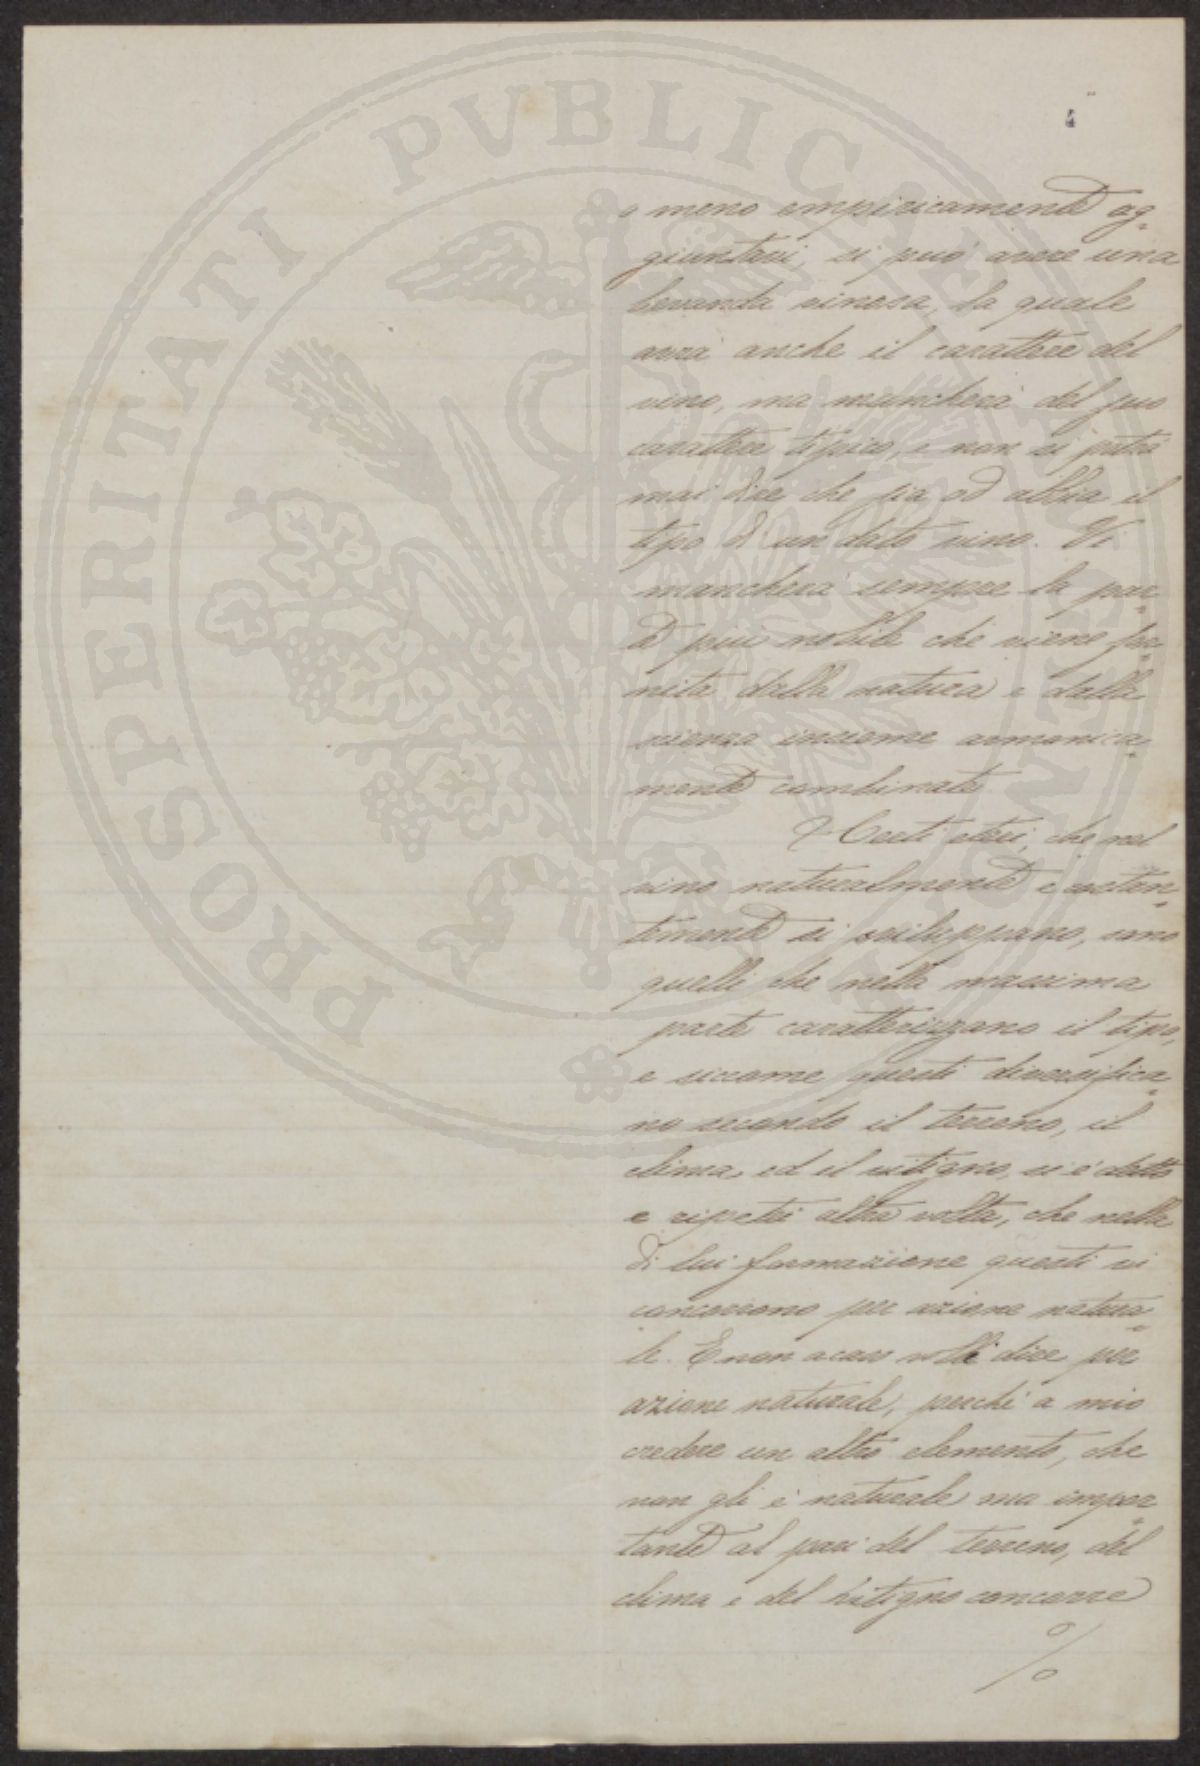 4
o meno empiricamente ag-
giuntavi, si può avere una
bevanda vinosa, la quale
avrà anche il carattere del
vino, ma mancherà del suo
carattere tipico, e non si potrà
mai dire che sia od abbia il
tipo di un dato vino. Vi
mancherà sempre la par-
te più nobile che viene for-
nita dalla natura e dalla
scienza insieme armonica-
mente combinate
Certi eteri, che nel
vino naturalmente e costan-
temente si sviluppano, sono
quelli che nella massima
parte caratterizzano il tipo,
e siccome questi diversifica-
no secondo il terreno, il
clima, ed il vitigno, si è detto
e ripetei altra volta, che nella
di lui formazione questi vi
concorrono per azione natura-
le. E non a caso volli dire per
azione naturale, perché a mio
credere un altro elemento, che
non gli è naturale ma impor-
tante al pari del terreno, del
clima e del vitigno concorre
%
PROSPERITATI PVBLICAE